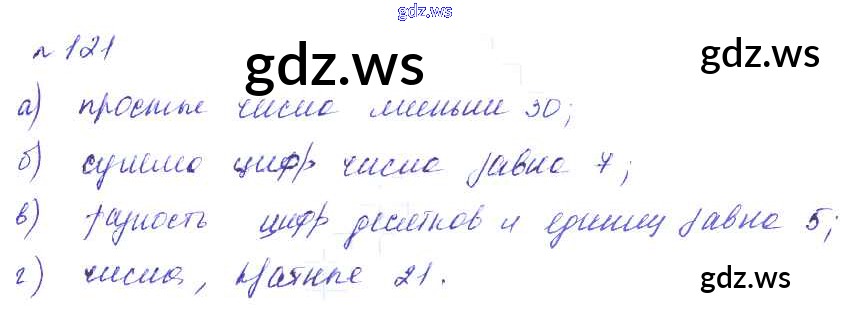 gdz.ws
№ 121
gdz.ws
gdz.ws
а) простые числа меньши 30;
б) сумма цифр числа равна 7;
в) разность цифр десятков и единиц равна 5;
г) числа, кратные 21.
gdz.ws
gdz.ws